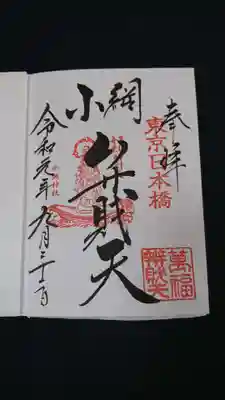 奉拝
東京日本橋
小網
弁財天
萬福
辨財天
令和元年九月二十一日